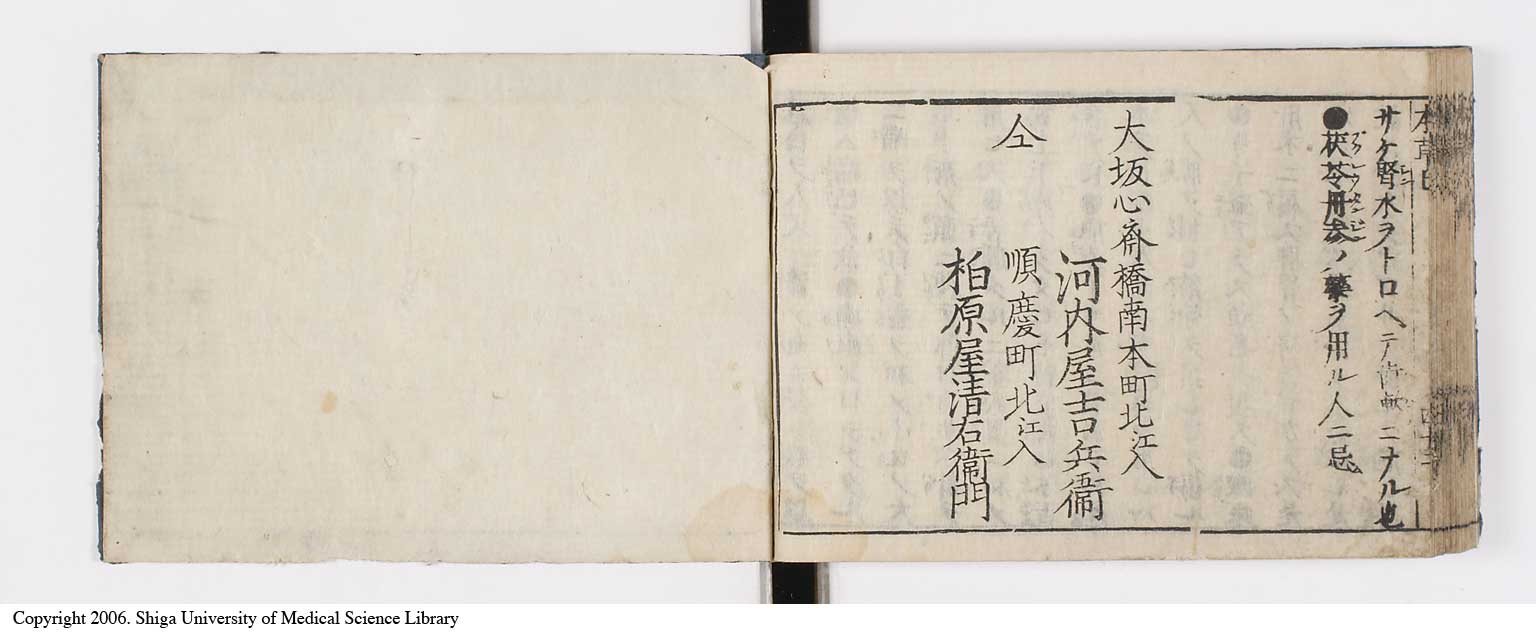 サケ腎水ヲトロヘテ
ニナル也
●茯苓丹参ノ藥ヲ用ル人ニ忌
大坂心斎橋南本町北江入
河内屋吉兵衛
仝 順慶町北江入
柏原屋清右衛門
Copyright 2006. Shiga University of Medical Science Library